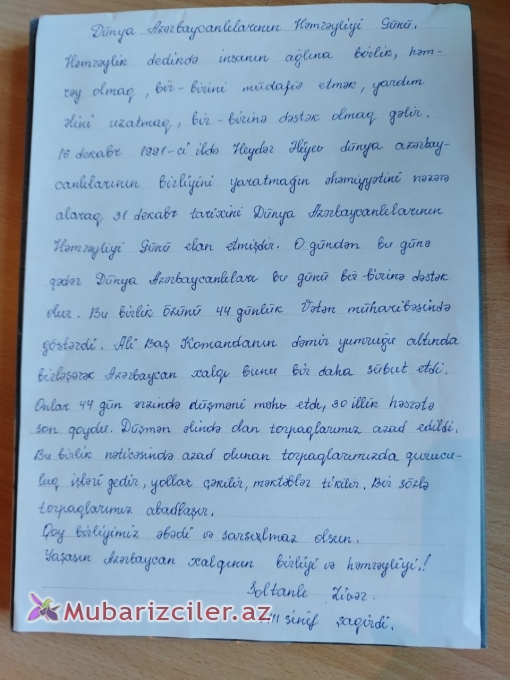 Dünya Azərbaycanlılarının Həmrəyliyi Günü.
Həmrəylik dedikdə insanın ağlına birlik, həm-
rəy olmaq, bir-birini müdafiə etmək, yardım
əlini uzatmaq, bir-birinə dəstək olmaq gəlir.
16 dekabr 1991-ci ildə Heydər Əliyev dünya azərbay-
canlılarının birliyini yaratmağın əhəmiyyətini nəzərə
alaraq 31 dekabr tarixini Dünya Azərbaycanlılarının
Həmrəyliyi Günü elan etmişdir. O gündən bu günə
qədər Dünya Azərbaycanlıları bu günü bir-birinə dəstək
olur. Bu birlik özünü 44 günlük Vətən müharibəsində
göstərdi. Ali Baş Komandanın dəmir yumruğu altında
birləşərək Azərbaycan xalqı bunu bir daha sübut etdi.
Onlar 44 gün ərzində düşməni məhv etdi, 30 illik həsrətə
son qoydu. Düşmən əlində olan torpaqlarımız azad edildi.
Bu birlik nəticəsində azad olunan torpaqlarımızda qurucu-
luq işləri gedir, yollar çəkilir, məktəblər tikilir. Bir sözlə
torpaqlarımız abadlaşır.
Qoy birliyimiz əbədi və sarsılmaz olsun.
Yaşasın Azərbaycan xalqının birliyi və həmrəyliyi!
Soltanlı
sinif şagirdi.
Mubarizciler.az